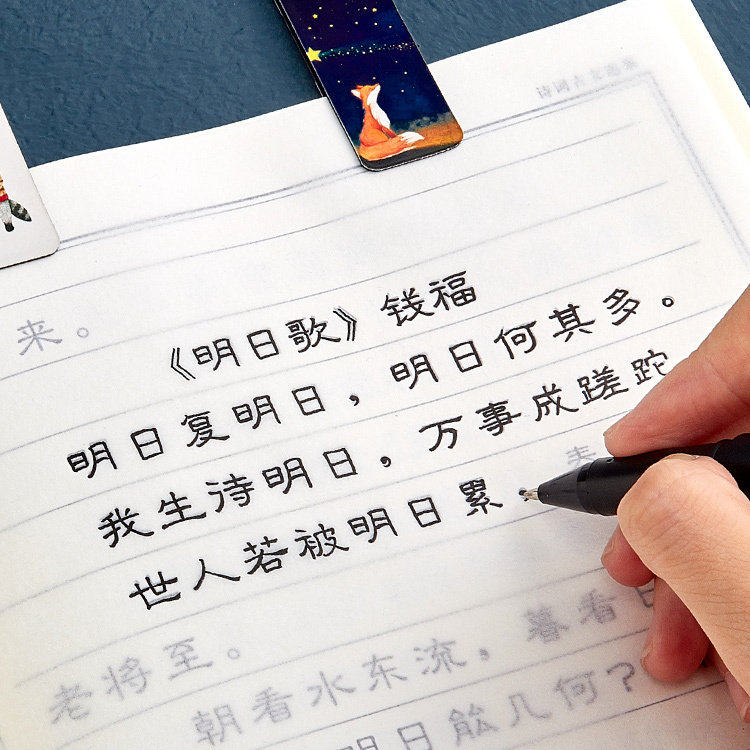 诗词古文选集
来。
《明日歌》钱福
明日复明日，明日何其多。
我生诗明日，万事成蹉跎
世人若被明日累，
老将至。
暮看日
朝看水东流，
明日能几何？